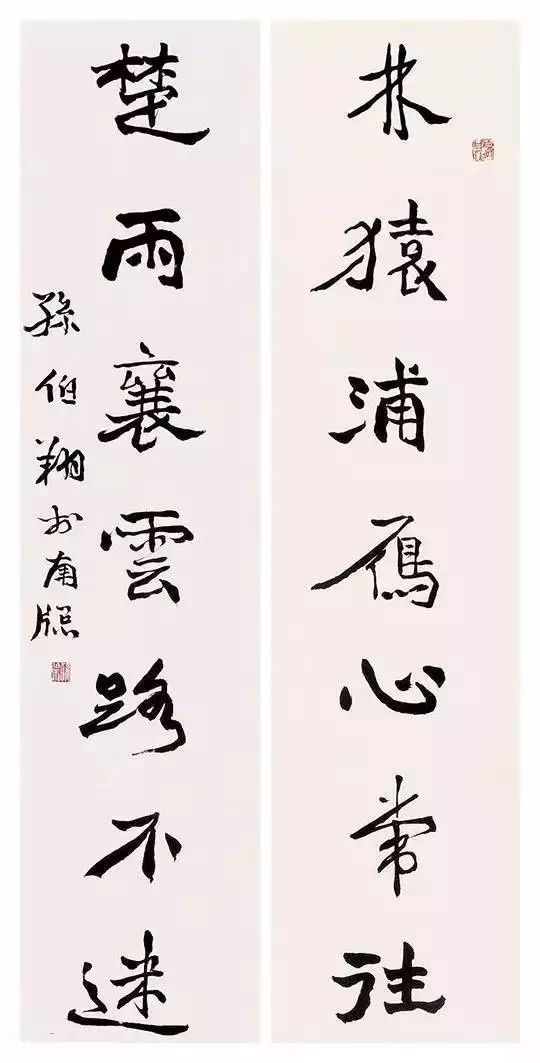 林猿浦鴈心常往
楚雨襄雲路不迷
孫伯翔於南牖